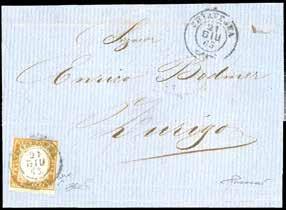 CHIAVENNA
21
GIU
63
Signor
Enrico Bodmer
Zurigo
21
GIU
63